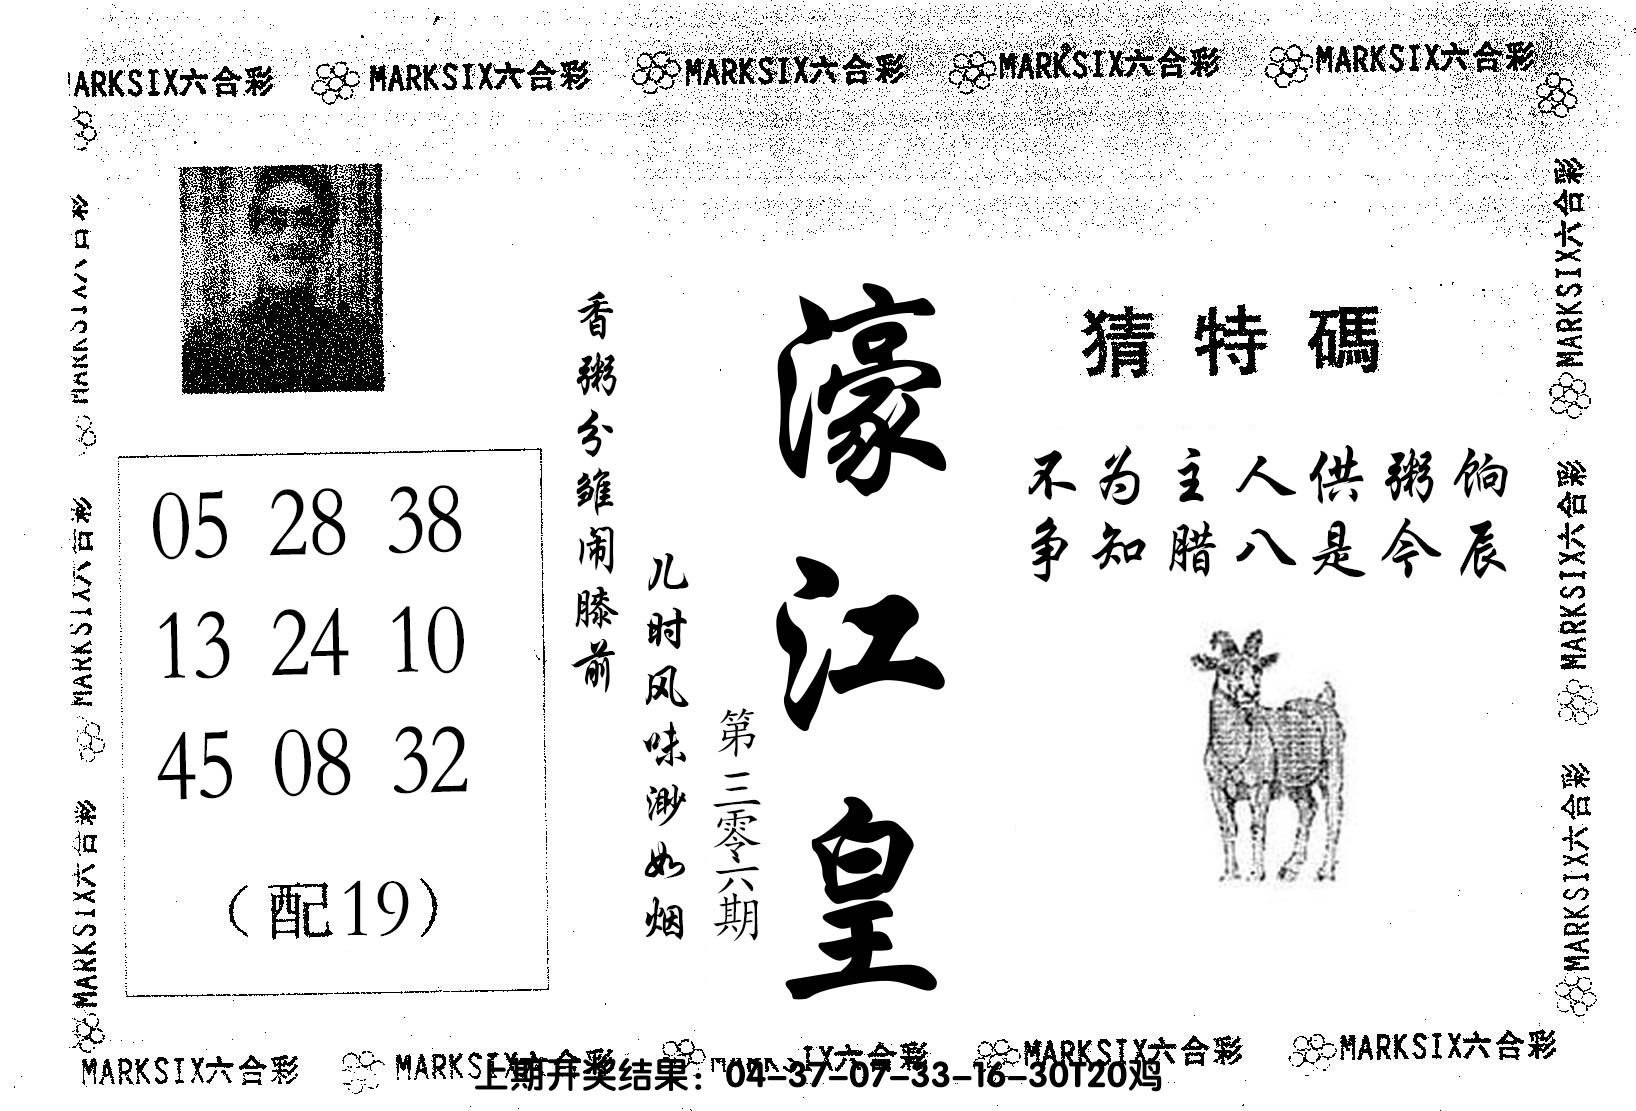 MARKSIX六合彩 MARKSIX六合彩 MARKSIX六合彩 MARKSIX六合彩 MARKSIX六合彩
猜特碼
不为主人供粥饷
争知腊八是今辰
濠江皇
第三零六期
儿时风味渺如烟
香粥分雏闹膝前
05 28 38
13 24 10
45 08 32
（配19）
MARKSIX六合彩
MARKSIX六合彩
MARKSIX六合彩
MARKSIX六合彩
MARKSIX六合彩
MARKSIX六合彩
MARKSIX六合彩 MARKSIX六合彩 MARKSIX六合彩 MARKSIX六合彩 MARKSIX六合彩
上期开奖结果：04-37-07-33-16-30T20鸡